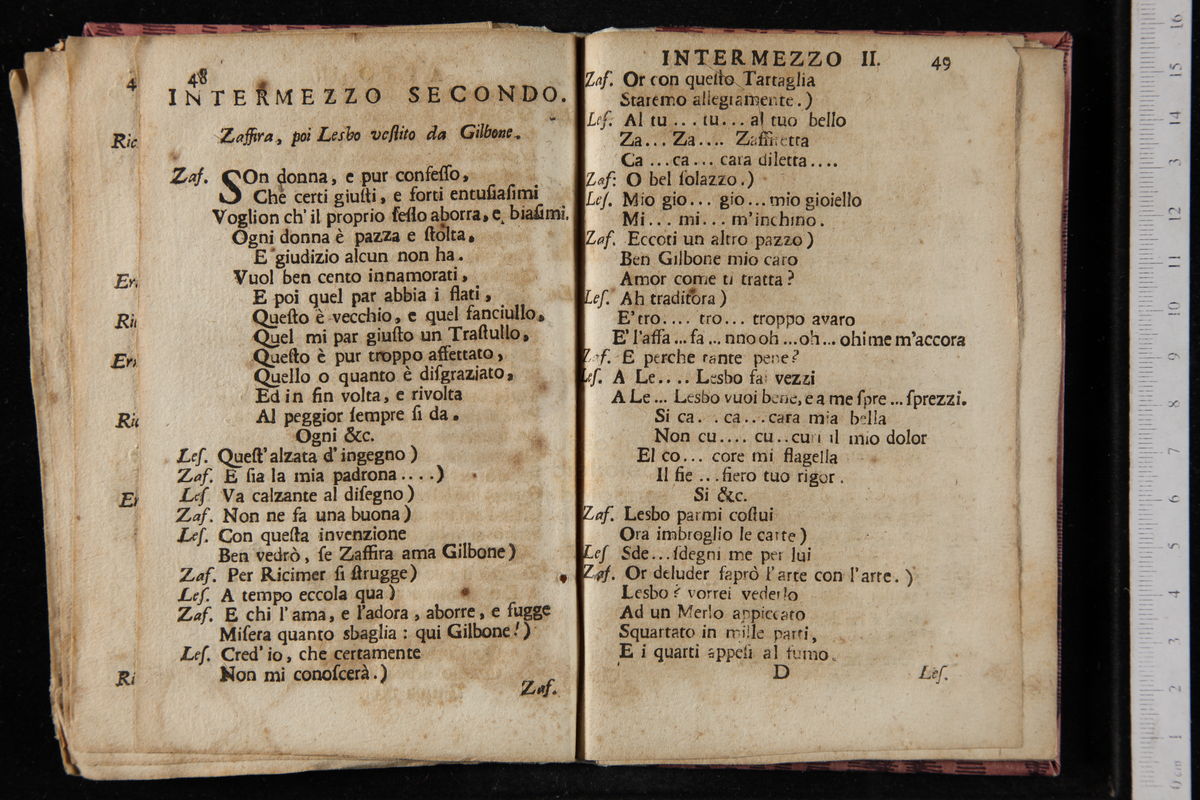 4
Ric
Er
Ric
Err
Ric
Er
Ri
48
INTERMEZZO SECONDO.
Zaffira, poi Lesbo veſtito da Gilbone.
Zaf. SOn donna, e pur confeſſo,
Che certi giuſti, e forti entuſiaſimi
Voglion ch' il proprio ſeſſo aborra, e biaſimi.
Ogni donna è pazza e ſtolta,
E giudizio alcun non ha.
Vuol ben cento innamorati,
E poi quel par abbia i flati,
Queſto è vecchio, e quel fanciullo,
Quel mi par giuſto un Traſtullo,
Queſto è pur troppo affettato,
Quello o quanto è diſgraziato,
Ed in fin volta, e rivolta
Al peggior ſempre ſi da.
Ogni &c.
Leſ. Queſt' alzata d' ingegno)
Zaf. E ſia la mia padrona....)
Leſ. Va calzante al diſegno)
Zaf. Non ne fa una buona)
Leſ. Con queſta invenzione
Ben vedrò, ſe Zaffira ama Gilbone)
Zaf. Per Ricimer ſi ſtrugge)
Leſ. A tempo eccola qua)
Zaf. E chi l' ama, e l'adora, aborre, e fugge
Miſera quanto sbaglia: qui Gilbone!)
Leſ. Cred' io, che certamente
Non mi conoſcerà.)
Zaf.
INTERMEZZO II. 49
Zaf. Or con queſto Tartaglia
Staremo allegramente.)
Leſ. Al tu... tu... al tuo bello
Za... Za.... Zaffiretta
Ca...ca... cara diletta....
Zaf: O bel ſolazzo.)
Leſ. Mio gio... gio...mio gioiello
Mi... mi... m'inchino.
Zaf. Eccoti un altro pazzo)
Ben Gilbone mio caro
Amor come ti tratta?
Leſ. Ah traditora)
E' tro.... tro... troppo avaro
E' l'affa...fa...nno oh...oh... ohime m'accora
Zaf. E perche tante pene?
Leſ. A Le.... Lesbo fai vezzi
A Le... Lesbo vuoi bene, e a me ſpre...ſprezzi.
Si ca...ca...cara mia bella
Non cu.... cu..curi il mio dolor
El co... core mi flagella
Il fie...fiero tuo rigor.
Si &c.
Zaf. Lesbo parmi coſtui
Ora imbroglio le carte)
Leſ Sde...ſdegni me per lui
Zaf. Or deluder ſaprò l'arte con l'arte.)
Lesbo? vorrei vederlo
Ad un Merlo appiccato
Squartato in mille parti,
E i quarti appeſi al fumo.
D
Leſ.